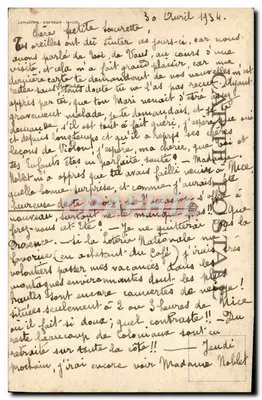 30 Avril 1934.
Chère petite sourette,
Tes oreilles ont dû tinter ces jours-ci, car nous
avons parlé de toi, de Vous, au cours d'une
visite, et cela m'a fait grand plaisir, car une
dernière carte te demandant de vos nouvelles
est restée sans
appris par que ton Mari venait d'être
gravement malade, je te demandais, et
il est tout à fait guéri,
depuis longtemps et qu'il a repris ses chères
leçons de Violon! J'espère, ma chère, que
tes enfants Etes en parfaite santé! — Madame
Noblet m'a appris que tu avais failli venir à Nice
quelle bonne surprise, et comme j'aurais été
heureuse
nouveau, surtout ne le manque pas! — que
ferez-vous cet Eté? — Je ne quitterai pas la
Provence. — Si la loterie Nationale
favorise (en achetant du Café) j'irais très
volontiers passer mes vacances dans les
montagnes environnantes dont les plus
hautes sont encore couvertes de neige!
situées seulement à 2 ou 3 heures de Nice
où il fait si doux; quel contraste!! — Du
reste beaucoup de Coloniaux sont en
retraite sur toute la côte!! — Jeudi
prochain, j'irai encore voir Madame Noblet
CARTE POSTALE